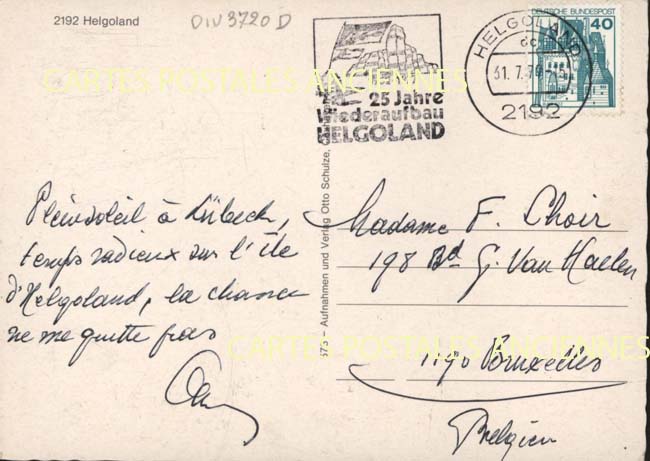 2192 Helgoland
DIV 3720 D
25 Jahre
Wiederaufbau
HELGOLAND
HELGOLAND
31.7.
2192
DEUTSCHE BUNDESPOST
40
CARTES POSTALES ANCIENNES
Plein soleil à Lübeck,
temps radieux sur l'île
d'Helgoland, la chance
ne me quitte pas
Madame F. Choir
198 Bd G. Van Haelen
1190 Bruxelles
Belgien
Aufnahmen und Verlag Otto Schulze,
CARTES POSTALES ANCIENNES